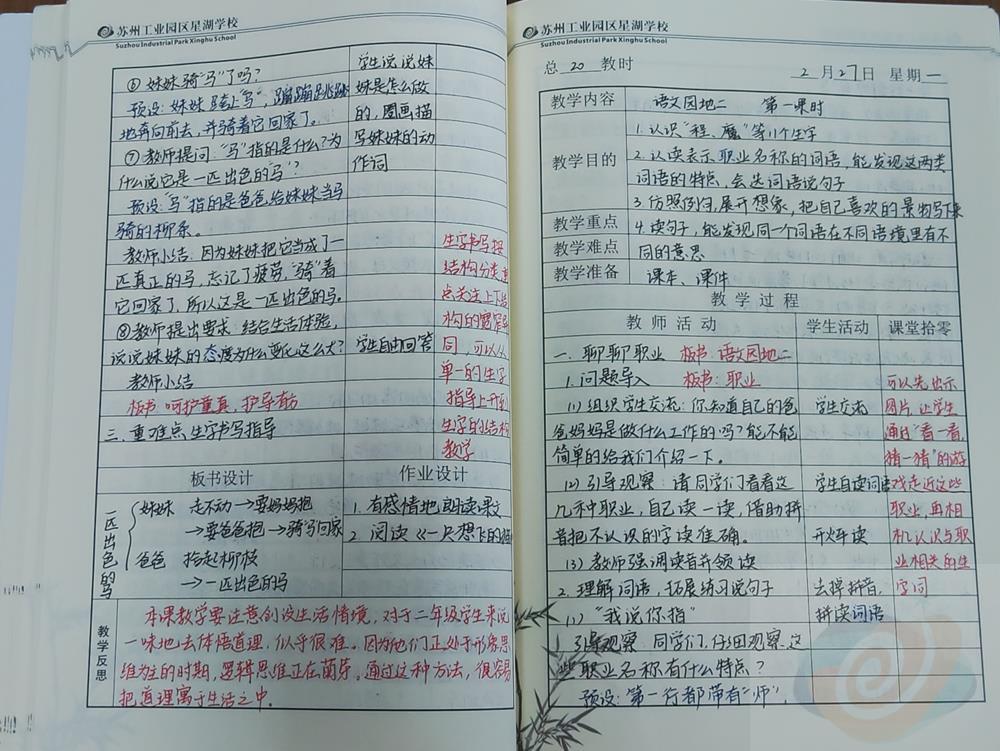 苏州工业园区星湖学校
Suzhou Industrial Park Xinghu School
⑥妹妹骑“马”了吗?
预设:妹妹跨上“马”,蹦蹦跳跳
地奔向前去,并骑着它回家了。
⑦教师提问:“马”指的是什么?为
什么说它是一匹出色的“马”?
预设:“马”指的是爸爸给妹妹当马
骑的柳条。
教师小结:因为妹妹把它当成了一
匹真正的马,忘记了疲劳,“骑”着
它回家了,所以这是一匹出色的马。
⑧教师提出要求:结合生活体验,
说说妹妹的态度为什么变化这么大?
教师小结
板书:呵护童真,护导有方
三、重难点生字书写指导
学生说说妹
妹是怎么做
的,圈画描
写妹妹的动
作词
学生自由回答
生字书写按
结构分类,重
点关注上下结
构的宽窄异
同,可以从
单一的生字
指导上升到
生字的结构
教学
板书设计
作业设计
一匹出色的马
妹妹 走不动→要妈妈抱
→要爸爸抱→骑马回家
爸爸 拾起柳枝
→一匹出色的马
1.有感情地朗读课文
2.阅读《一只想飞的猫
教学反思
本课教学要注意创设生活情境,对于二年级学生来说
一味地去体悟道理,似乎很难。因为他们正处于形象思
维为主的时期,逻辑思维正在萌芽。通过这种方法,很容易
把道理寓于生活之中。
苏州工业园区星湖学校
Suzhou Industrial Park Xinghu School
总 20 教时
2月27日 星期一
教学内容
语文园地二 第一课时
教学目的
1.认识“程、魔”等11个生字
2.认读表示职业名称的词语,能发现这两类
词语的特点,会选词语说句子
3.仿照例句,展开想象,把自己喜欢的景物写下来
教学重点
4.读句子,能发现同一个词语在不同语境里有不
教学难点
同的意思
教学准备
课本、课件
教学过程
教师活动
学生活动
课堂拾零
一、聊聊职业 板书:语文园地二
1.问题导入 板书:职业
(1)组织学生交流:你知道自己的爸
爸妈妈是做什么工作的吗?能不能
简单的给我们介绍一下。
(2)引导观察:请同学们看看这
几种职业,自己读一读,借助拼
音把不认识的字读准确。
(3)教师强调读音并领读
2.理解词语,拓展练习说句子
(1)“我说你指”
引导观察:同学们,仔细观察,这
些职业名称有什么特点?
预设:第一行都带有“师”,
学生交流
学生自读词语
开火车读
去掉拼音,
拼读词语
可以先出示
图片,让学生
通过“看一看,
猜一猜”的游
戏走近这些
职业,再相
机认识与职
业相关的生
字词